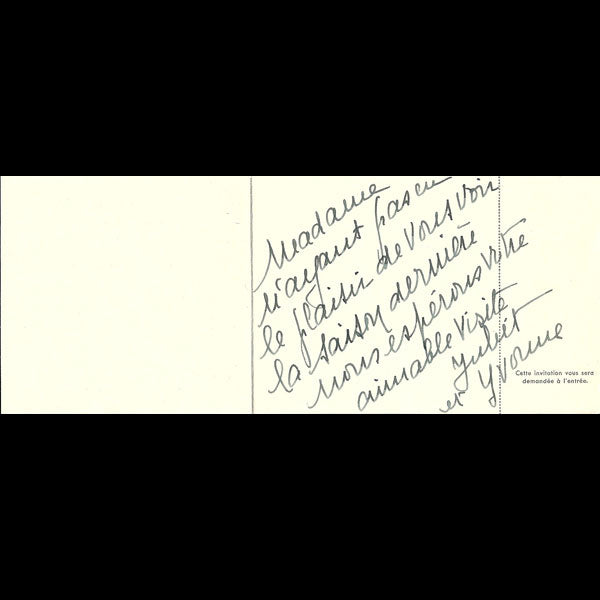 Madame
n'ayant pas eu
le plaisir de vous voir
la saison dernière
nous espérons votre
aimable visite
Juliet
et Yvonne
Cette invitation vous sera
demandée à l'entrée.